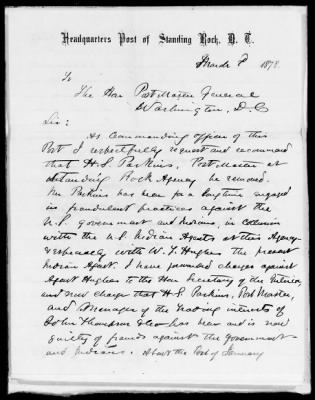 Headquarters Post of Standing Rock, D. T.
March 8 1878
To
The Hon Post Master General
Washington, D.C
Sir:
As Commanding Officer of this
Post I respectfully request and recommend
that H.S. Parkins, Post Master at
Standing Rock Agency be removed.
Mr Parkins has been for a long time engaged
in fraudulent practices against the
U.S. Government and Indians, in collusion
with the U.S. Indian Agents at this Agency
especially with W. T. Hughes the present
Indian Agent. I have forwarded charges against
Agent Hughes to the Hon Secretary of the Interior
and now charge that H.S. Parkins, Post Master,
and Manager of the trading interests of
John Thompson has been and is now
guilty of frauds against the Government
and Indians. About the Post of January